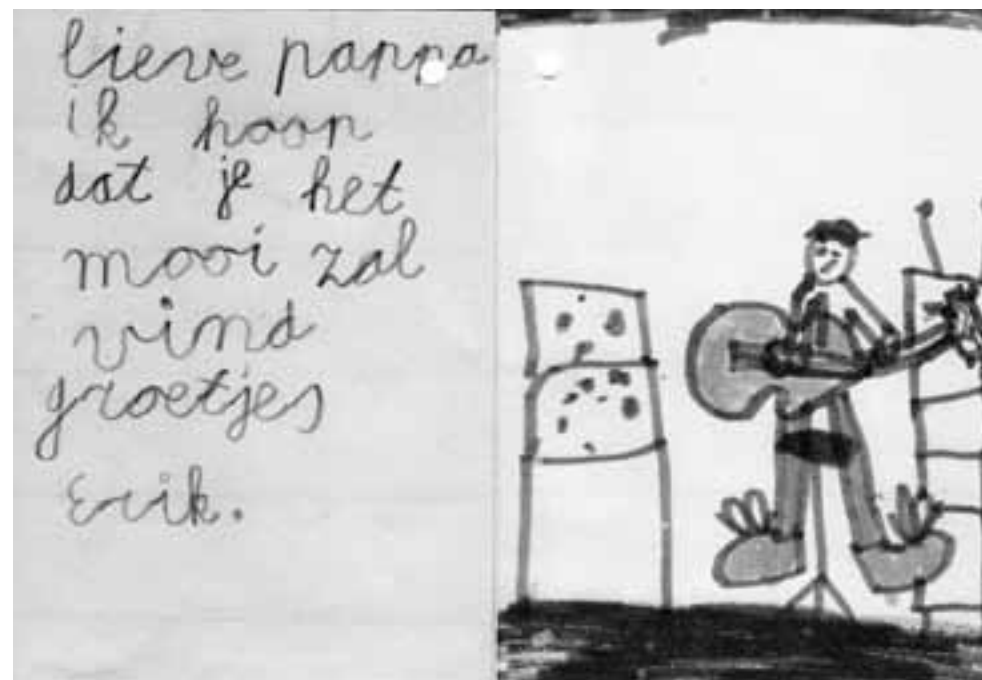 lieve pappa
ik hoop
dat je het
mooi zal
vind
groetjes
Erik.